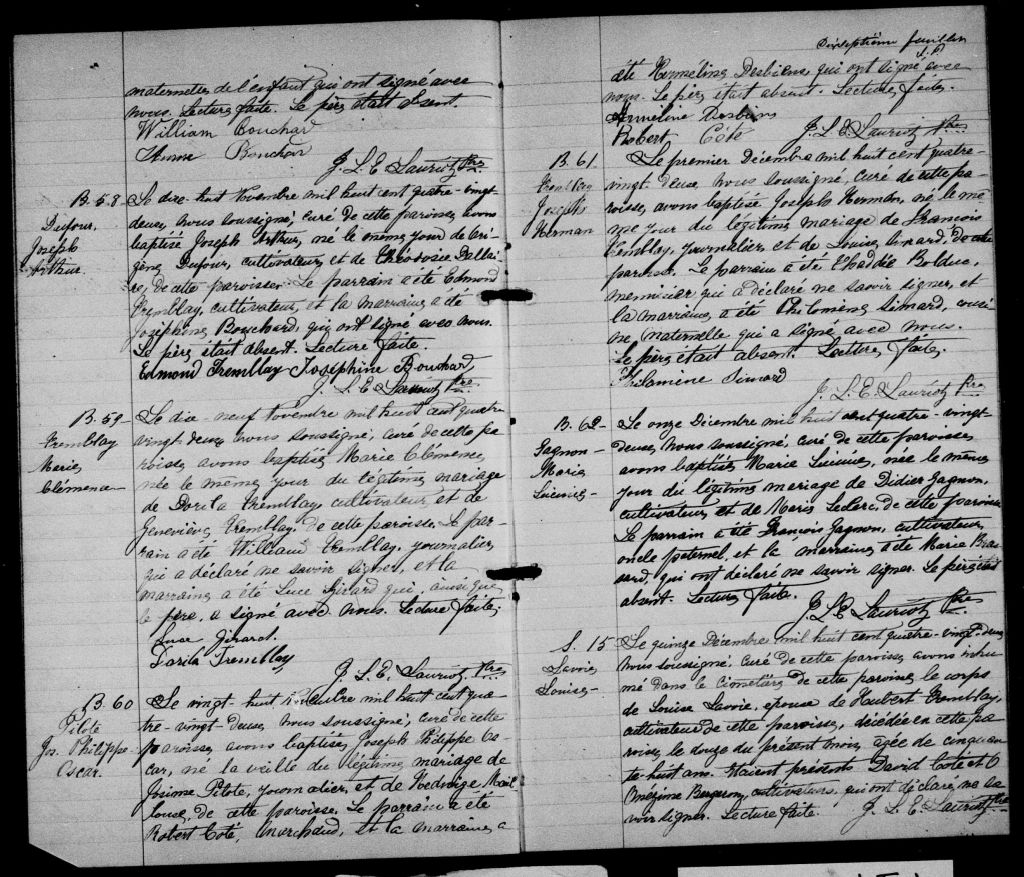 maternelles de l'enfant qui ont signé avec
nous. Lecture faite. Le père était absent.
William Bouchar
Bouchar
J. L. E. Lauriot Ptre
B. 58
Dufour,
Joseph
Arthur
Le dix-huit Novembre mil huit cent quatre-vingt
deux, nous soussigné, curé de cette paroisse, avons
baptisé Joseph Arthur, né le même jour de
Dufour, cultivateur, et de Théodosie Dallai-
re, de cette paroisse. Le parrain a été Edmond
Tremblay, cultivateur, et la marraine a été
Joséphine Bouchard, qui ont signé avec nous.
Le père était absent. Lecture faite.
Edmond Tremblay Josephine Bouchar
J. L. E. Lauriot Ptre
B. 59
Tremblay
Marie
Clémence
Le dix-neuf Novembre mil huit cent quatre
vingt-deux, nous soussigné, curé de cette pa-
roisse avons baptisé Marie Clémence
née le même jour du légitime mariage
de Dorila Tremblay, cultivateur, et de
Geneviève Tremblay, de cette paroisse. Le par-
rain a été William Tremblay, journalier,
qui a déclaré ne savoir signer, et la
marraine a été Luce Girard qui, ainsi que
le père, a signé avec nous. Lecture faite.
Luce Girard.
Dorila Tremblay
J. L. E. Lauriot, Ptre
B. 60
Pilote
Jos. Philippe
Oscar.
Le vingt-huit Novembre mil huit cent qua-
tre-vingt-deux, nous soussigné, curé de cette
paroisse, avons baptisé Joseph Philippe Os-
car, né la veille du légitime mariage de
Josime Pilote, journalier, et de Hedwige Mail-
loux, de cette paroisse. Le parrain a été
Robert Coté, marchand, et la marraine a
Dixseptième feuillet
été Hermeline Desbiens, qui ont signé avec
nous. Le père était absent. Lecture faite.
Armeline Desbiens
Robert Coté
J. L. E. Lauriot Ptre
B. 61
Tremblay
Joseph
Herman
Le premier Décembre mil huit cent quatre-
vingt-deux, nous soussigné, curé de cette pa-
roisse, avons baptisé Joseph Herman, né le mê-
me jour du légitime mariage de François
Tremblay, journalier, et de Louise Simard, de cette
paroisse. Le parrain a été Thaddée Bolduc,
menuisier qui a déclaré ne savoir signer, et
la marraine a été Philomène Simard, cousi-
ne maternelle qui a signé avec nous.
Le père était absent. Lecture faite.
Philomène Simard
J. L. E. Lauriot Ptre
B. 62
Gagnon
Marie
Le onze Décembre mil huit cent quatre-vingt-
deux, nous soussigné, curé de cette paroisse,
avons baptisé Marie née le même
jour du légitime mariage de Didier Gagnon,
cultivateur, et de Marie Leclerc, de cette paroisse.
Le parrain a été François Gagnon, cultivateur,
oncle paternel, et la marraine a été Marie Bras-
sard, qui ont déclaré ne savoir signer. Le père était
absent. Lecture faite.
J. L. E. Lauriot Ptre
S. 15
Savoie
Louise
Le quinze Décembre mil huit cent quatre-vingt-deux
nous soussigné, curé de cette paroisse avons inhu-
mé dans le cimetière de cette paroisse, le corps
de Louise Savoie, épouse de Hubert Tremblay,
cultivateur de cette paroisse, décédée en cette pa-
roisse, le douze du présent mois, agée de cinquan-
te-huit ans. Etaient présents David Coté et O-
nézime Bergeron, cultivateurs, qui ont déclaré ne sa-
voir signer. Lecture faite. J. L. E. Lauriot Ptre